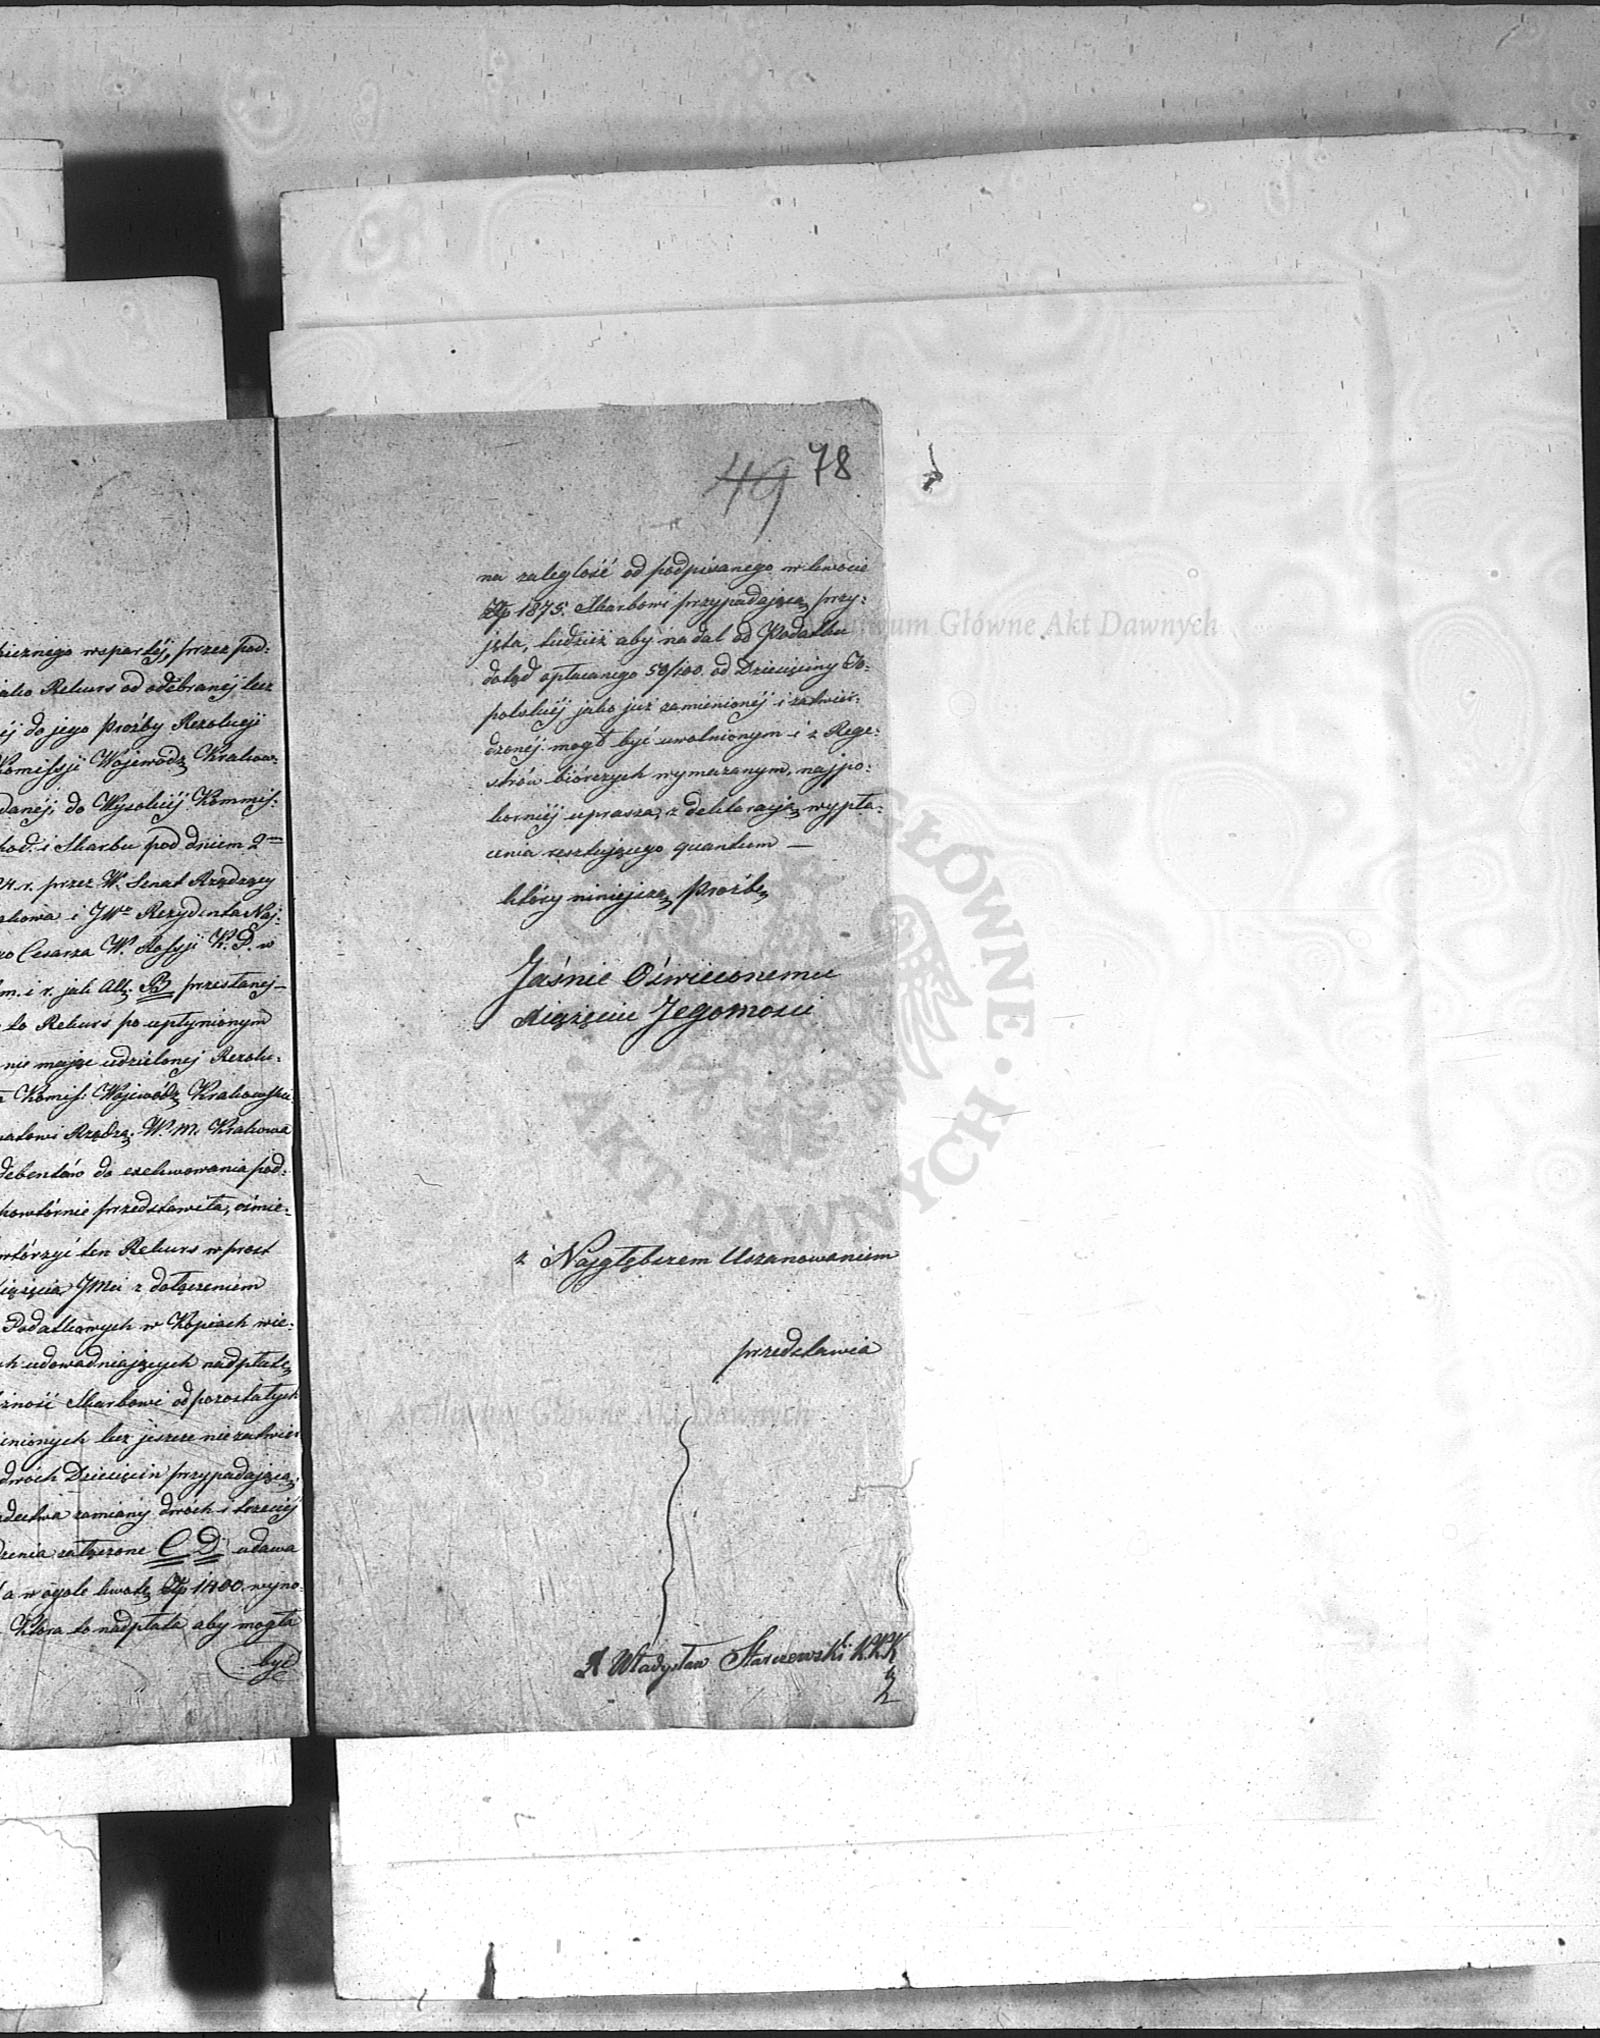 icznego wspartéj, przez pod:
jako Rekurs od odebranéj lecz
éj do jego Prośby Rezolucji
Komissji Wojewódz Krakow:
danéj, do Wysokiéj Kommis:
hod. i Skarbu pod dniem 2
24 r. przez W. Senat Rządzący
akowa i JWo Rezydenta Naj:
go Cesarza W. Rossyi K. P. w
m. i r. jak All: B przesłanej
to Rekurs po upłynionym
nie mając udzielonej Rezolu:
Komis: Wojewódz Krakowska
natowi Rządzą: W. M. Krakowa
debentów do exekwowania pod:
powtórnie przedstawiła, ośmie:
wtórzyć ten Rekurs wprost
iążęcia JMci z dołączeniem
Podatkowych w Kopiach wie:
ch udowadniających nadpłatę
żność Skarbowi od pozostałych
ienionych lecz jeszcze nie zatwier
dwóch Dziesięcin przypadającą
adectwa zamiany dwóch i trzeciéj
dzenia załączone C D udawa
a w ogóle kwotę Złp 1400 wyno:
Która to nadpłata aby mogła
być
49 78
na zaległość od podpisanego w kwocie
Złp 1875. Skarbowi przypadającą przy:
jęta, tudzież aby nadal od Podatku
dotąd opłacanego 50/100. od Dziesięciny To:
polskiéj jako już zamienionéj i zatwier:
dzonéj mogł być uwolnionym i z Reje:
strów biórczych wymazanym, najpo:
korniéj uprasza, z deklaracją wypła:
cenia resztującego quantum —
który niniejszą Prośbę
Jaśnie Oświeconemu
Xiążęciu Jegomości
z Najgłębszem Uszanowaniem
przedstawia
X Władysław Starzewski K.K.K
Archiwum Główne Akt Dawnych
Archiwum Główne Akt Dawnych
GŁÓWNE · AKT DAWNYCH ·